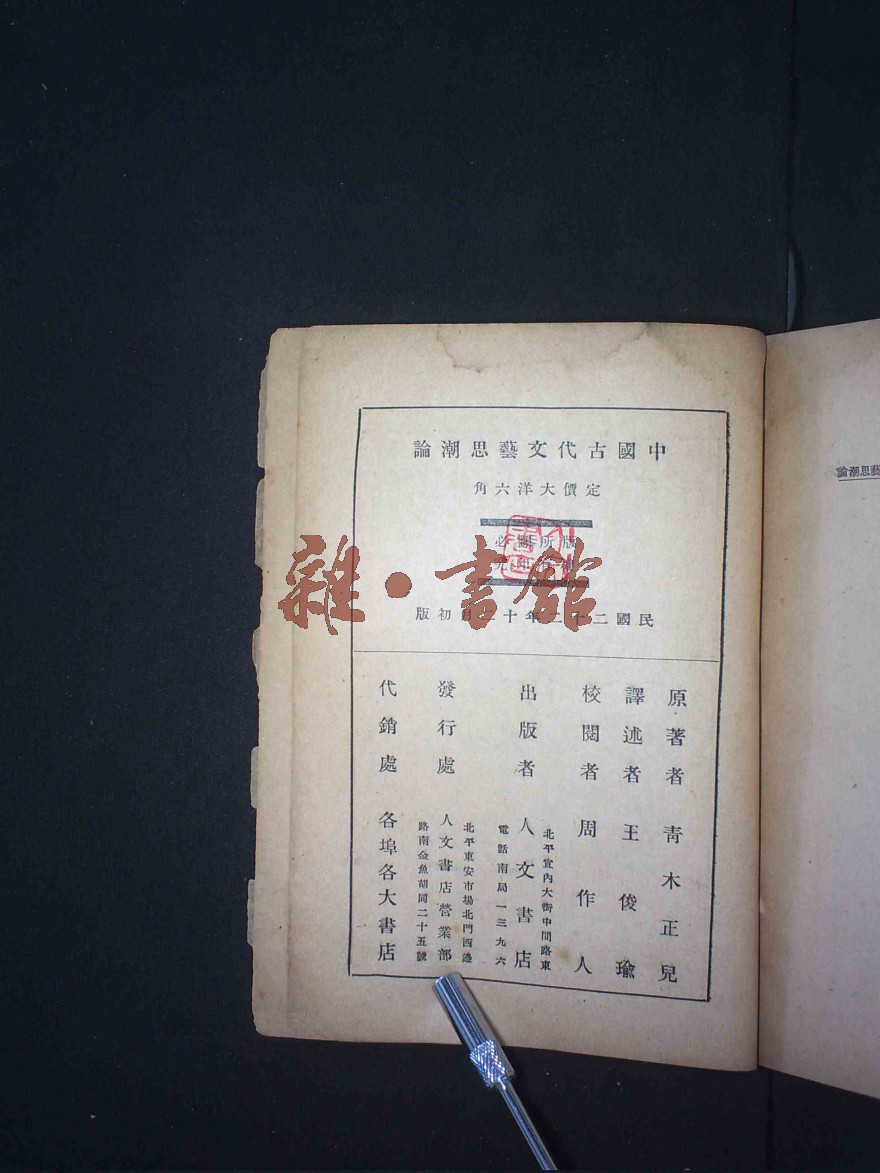 中國古代文藝思潮論
定價大洋六角
版所
必
民國二十二年十二月初版
原著者 青木正兒
譯述者 王俊瑜
校閱者 周作人
出版者 人文書店
北平宣內大街中間路東
電話南局一三九六
發行處 人文書店營業部
北平東安市場北門西邊
路南金魚胡同二十五號
代銷處 各埠各大書店
雜·書館